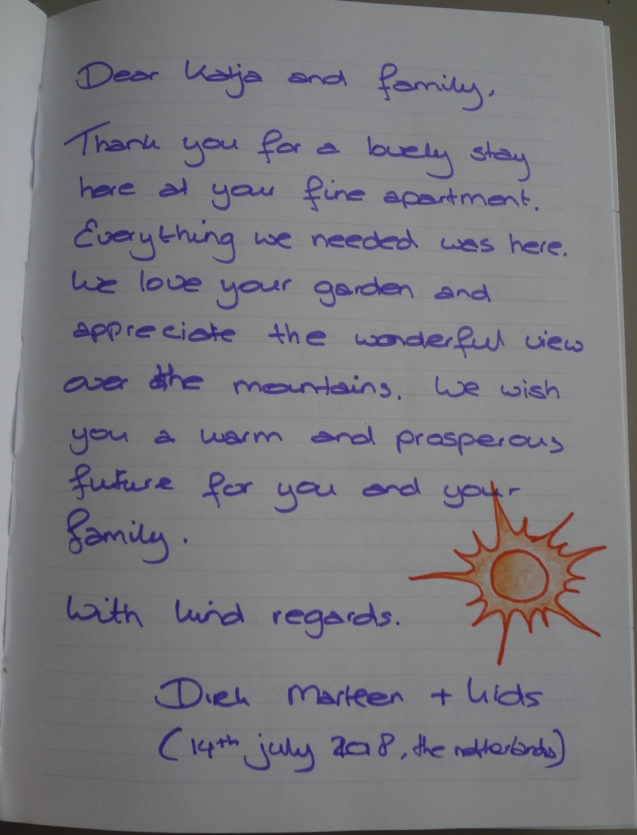 Dear Katja and family,
Thank you for a lovely stay
here at your fine apartment.
Everything we needed was here.
We love your garden and
appreciate the wonderful view
over the mountains. We wish
you a warm and prosperous
future for you and your
family.
With kind regards.
Dirk Marleen + kids
(14th july 2018, the netherlands)